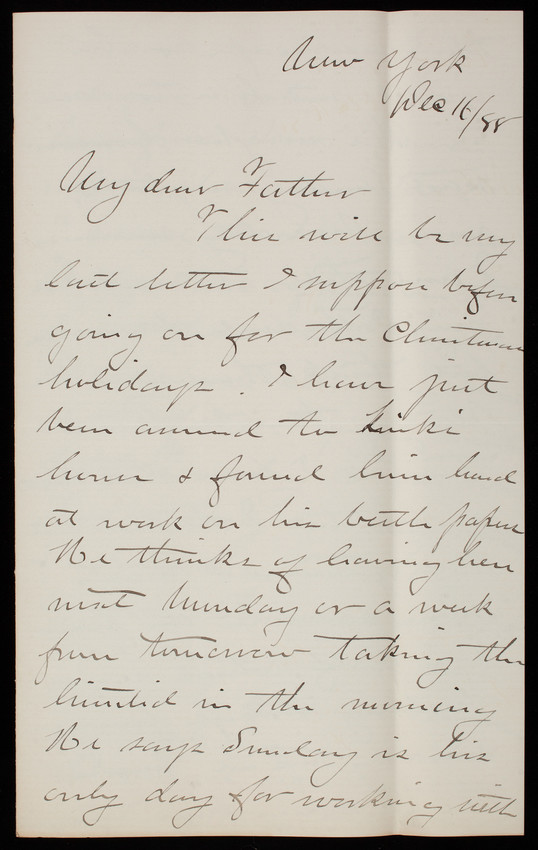 New York
Dec 16/88
My dear Father
This will be my
last letter I suppose before
going on for the Christmas
holidays. I have just
been around to
house & found him hard
at work on his teeth paper
He thinks of leaving here
next Monday or a week
from tomorrow taking the
limited in the morning
He says Sunday is his
only day for working with